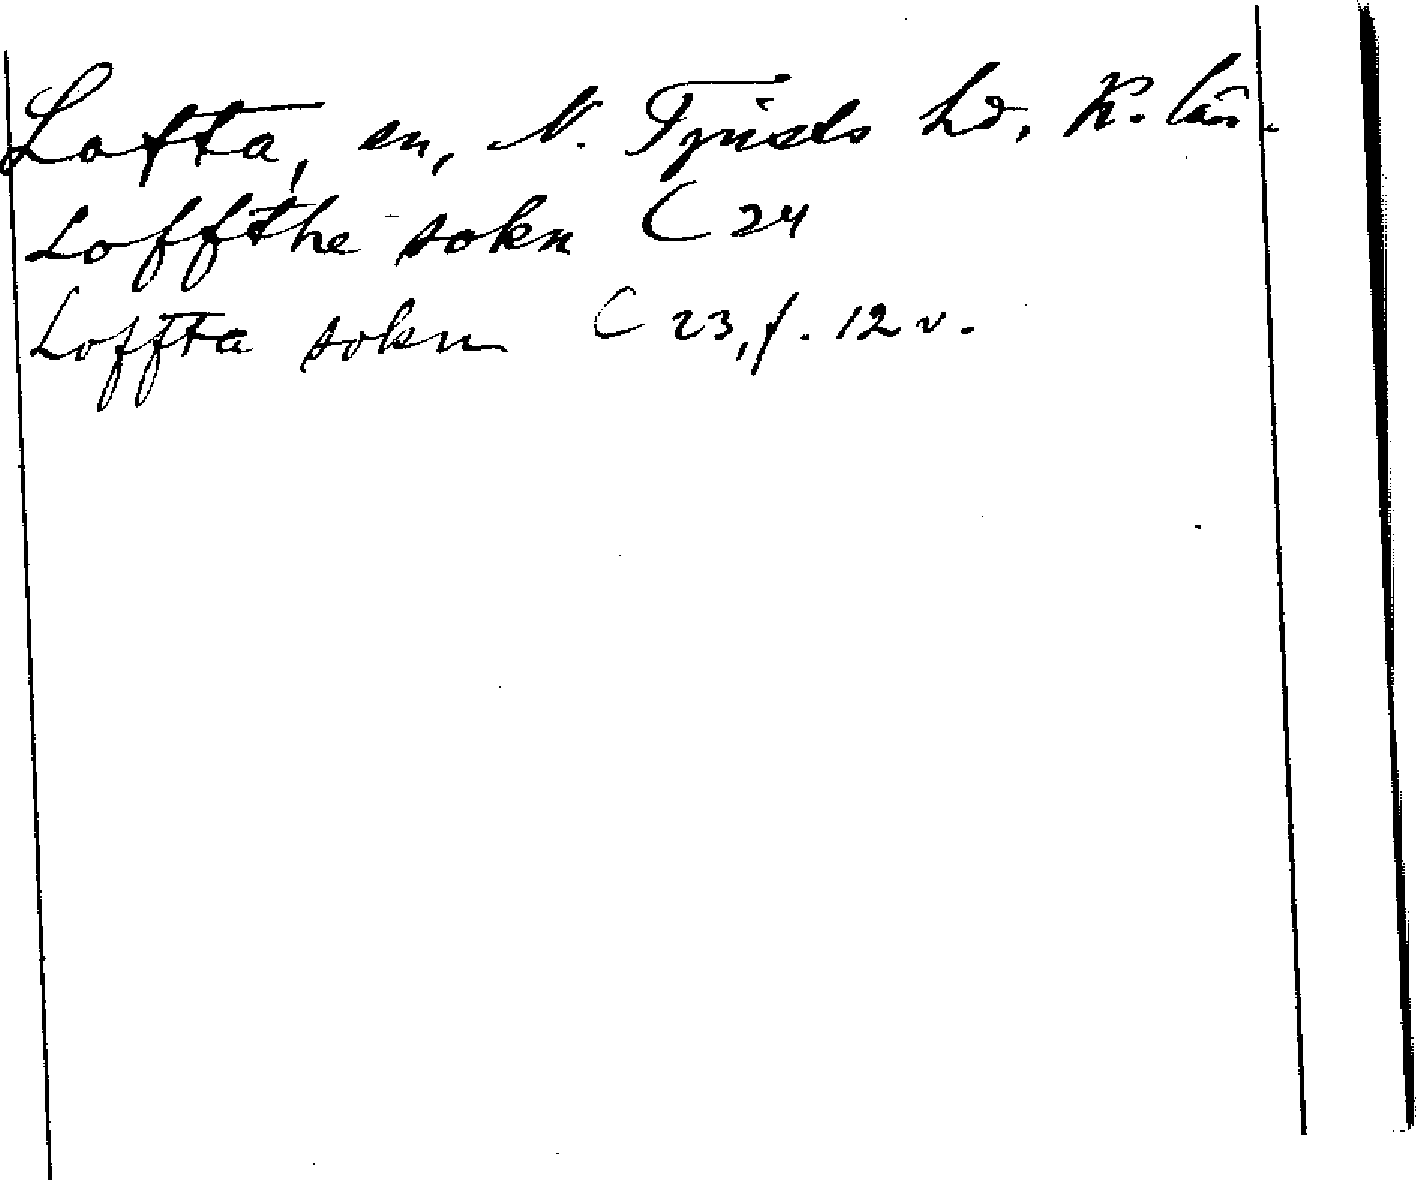 Lofta, sn, N. Tjusts hd, K. län.
Loffthe sokn C 24
Loffta sokn C 23, f. 12 v.